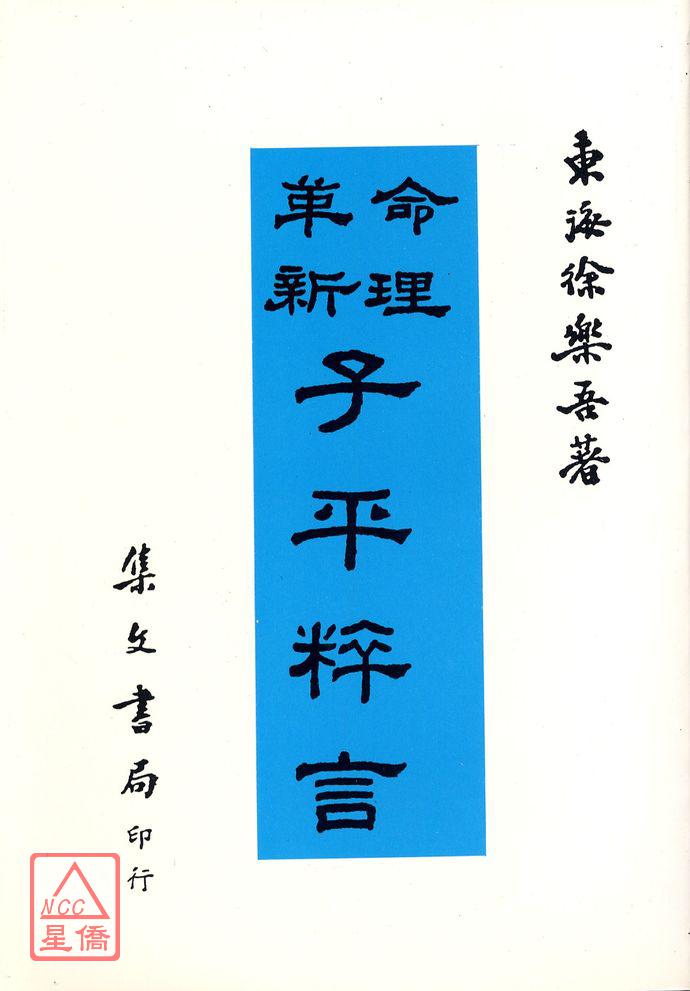 東海徐樂吾著
命理
革新
子平粹言
集文書局印行
NCC
星僑